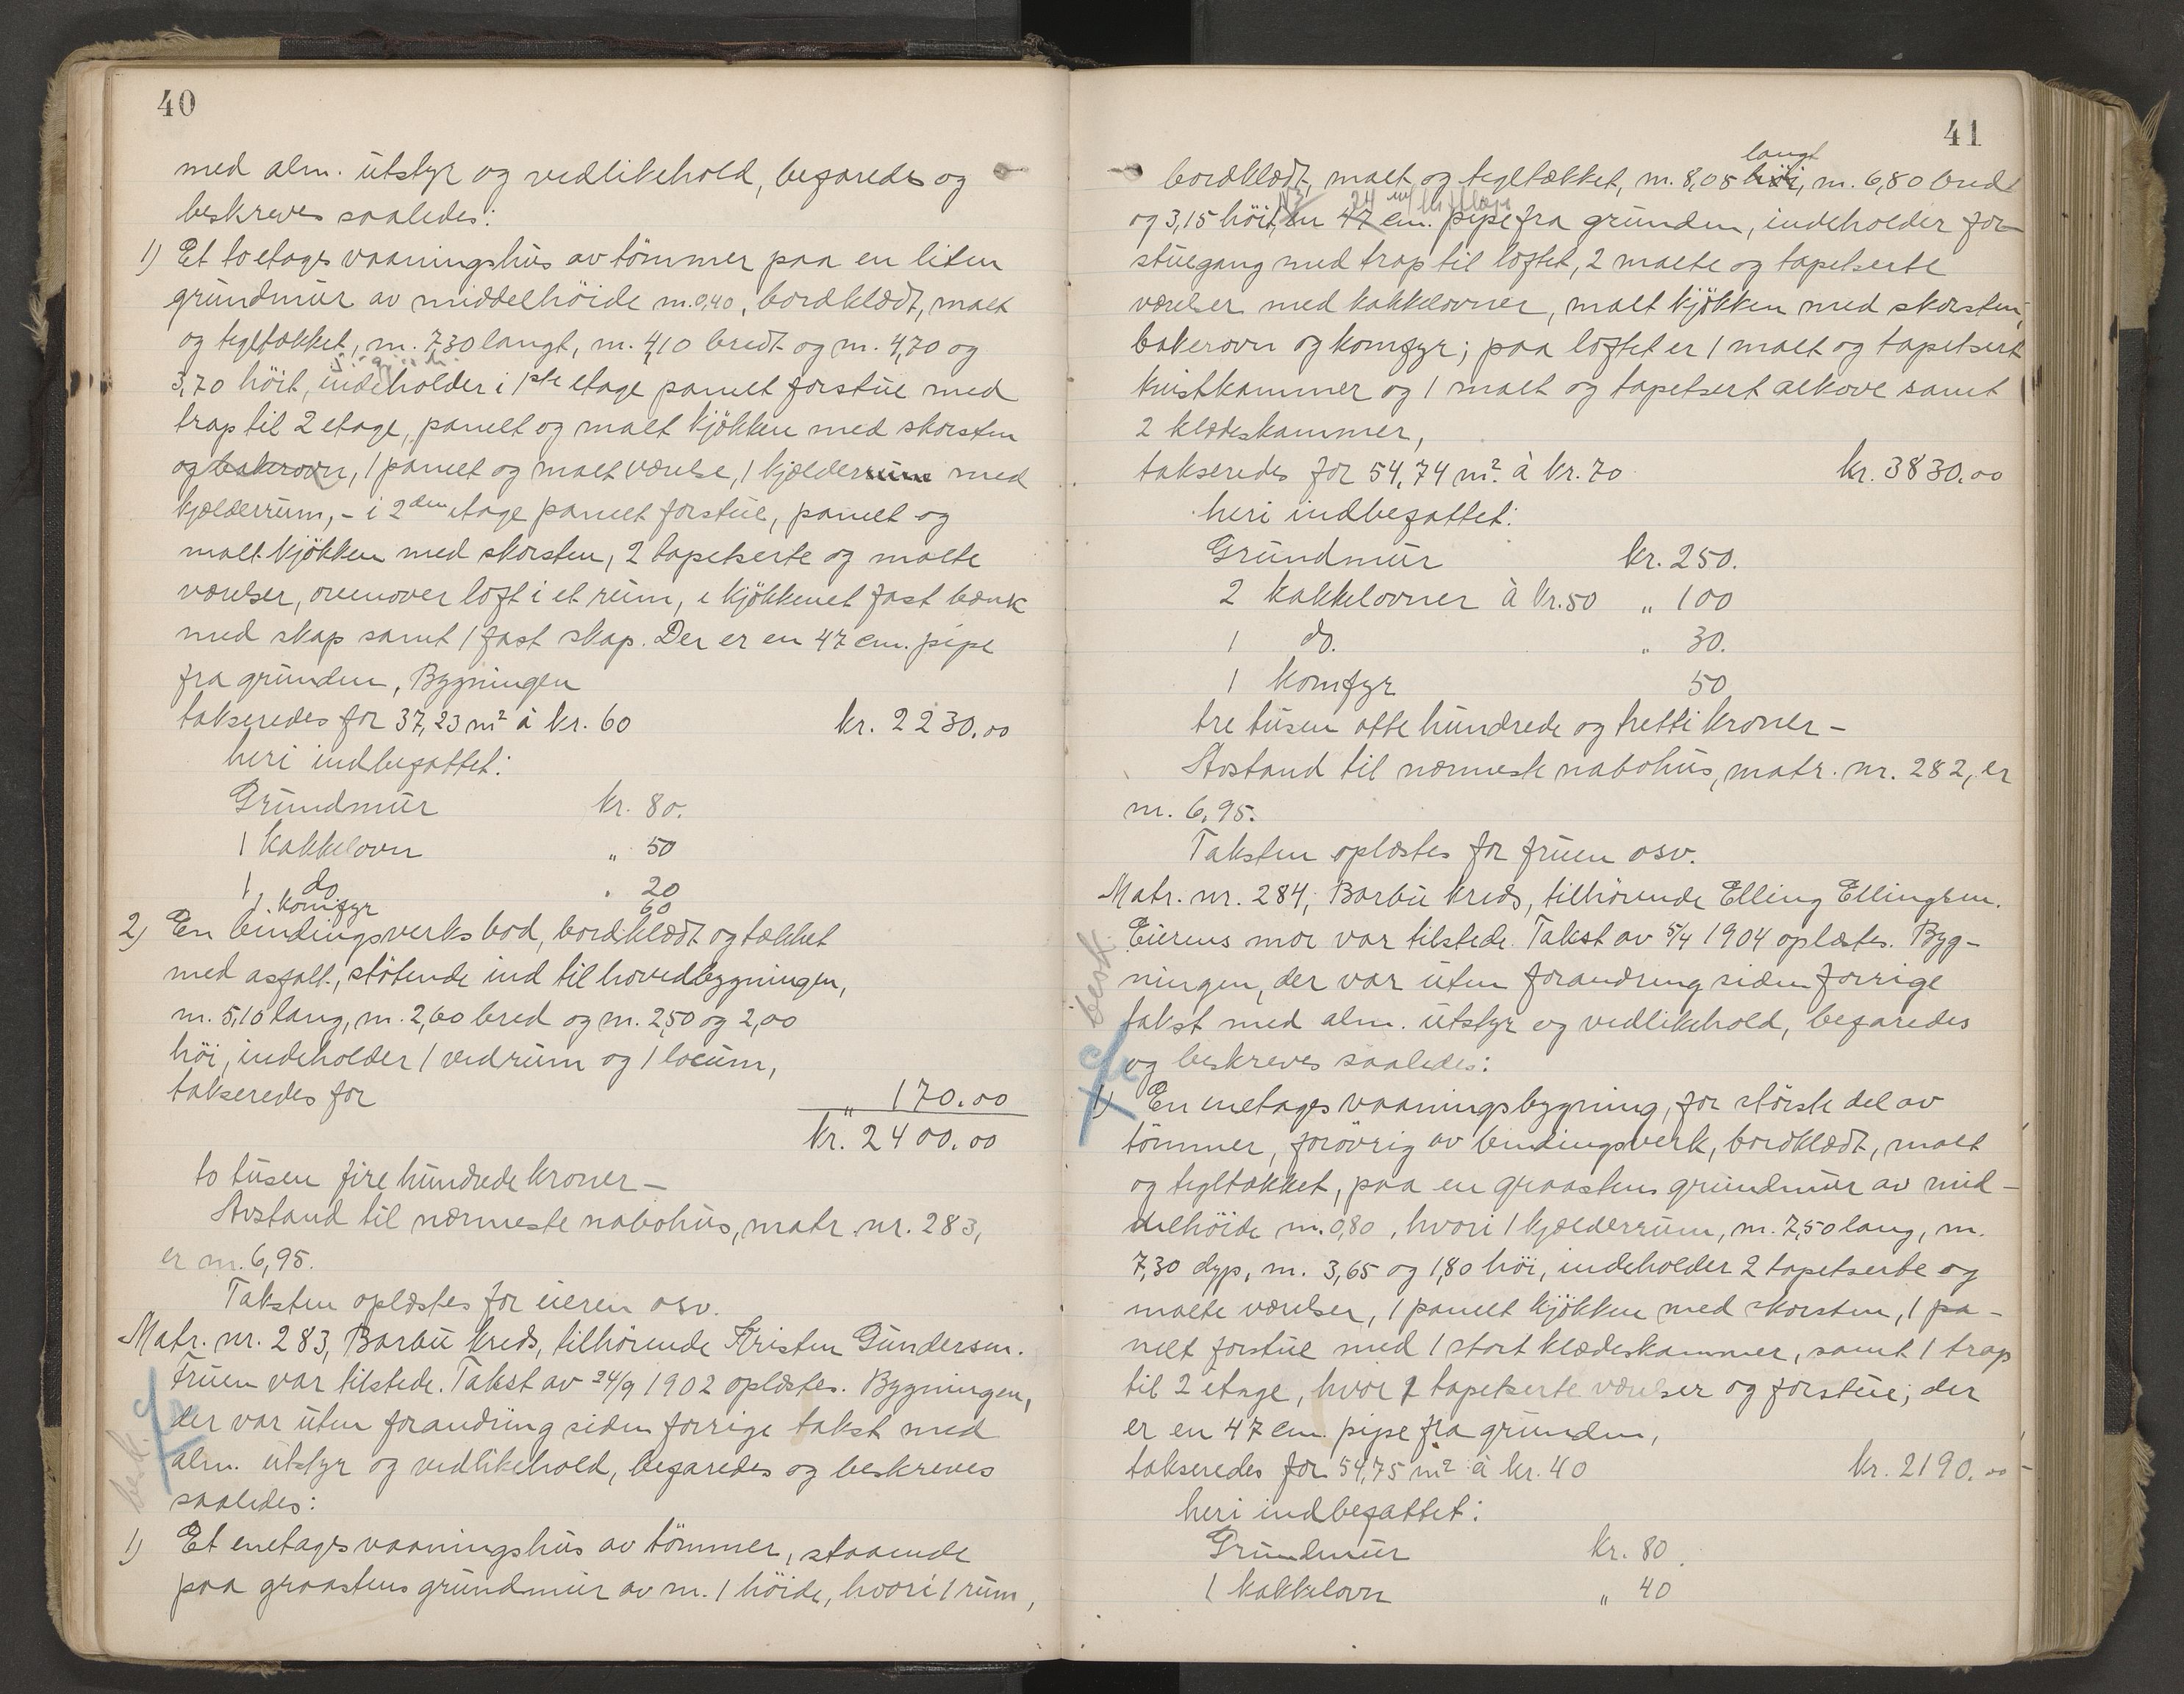 40
med alm. utstyr og vedlikehold, befaredes og
beskreves saaledes:
1) Et toetages vaaningshus av tömmer paa en liten
grundmur av middelhöide m. 0,40, bordklædt, malt
og tegltækket, m. 7,30 langt, m. 4,10 bredt og m. 4,70 og
3,70 höit, indeholder i 1ste etage panelt forstue med
trap til 2 etage, panelt og malt kjökken med skorsten
og bakerovn, 1 panelt og malt værelse, 1 kjælderrum med
kjælderrum, - i 2den etage panelt forstue, panelt og
malt kjökken med skorsten, 2 tapetserte og malte
værelser, ovenover loft i et rum, i kjökkenet fast bænk
med skap samt 1 fast skap. Der er en 47 cm. pipe
fra grunden, Bygningen
takseredes for 37,23 m² à kr. 60 kr. 2230.00
heri indbefattet:
Grundmur kr. 80.
1 kakkelovn " 50
1 do " 20
1 komfyr 60
2) En bindingsverks bod, bordklædt og tækket
med asfalt, stötende ind til hovedbygningen,
m. 5,10 lang, m. 2,60 bred og m. 2,50 og 2,00
höi, indeholder 1 vedrum og 1 locum,
takseredes for " 170.00
kr. 2400.00
to tusen fire hundrede kroner —
Avstand til nærmeste nabohus, matr. nr. 283,
er m. 6,95.
Taksten oplæstes for eieren osv.
Matr. nr. 283, Barbu kreds, tilhörende Kristen Gundersen.
Fruen var tilstede. Takst av 24/9 1902 oplæstes. Bygningen,
der var uten forandring siden forrige takst med
alm. utstyr og vedlikehold, befaredes og beskreves
saaledes:
besk.
1) Et enetages vaaningshus av tömmer, staaende
paa graastens grundmur av m. 1 höide, hvori 1 rum,
41
langt
bordklædt, malt og tegltækket, m. 8,05 höi, m. 6,80 bred
og 3,15 höit, en 47 cm. pipe fra grunden, indeholder for-
stuegang med trap til loftet, 2 malte og tapetserte
værelser med kakkelovner, malt kjökken med skorsten,
bakerovn og komfyr; paa loftet er 1 malt og tapetsert
kvistkammer og 1 malt og tapetsert alkove samt
2 klædeskammer,
takseredes for 54,74 m² à kr. 70 kr. 3830.00
heri indbefattet:
Grundmur kr. 250.
2 kakkelovner à kr. 50 " 100
1 do. " 30.
1 komfyr 50
tre tusen otte hundrede og tretti kroner —
Avstand til nærmeste nabohus, matr. nr. 282, er
m. 6,95.
Taksten oplæstes for fruen osv.
Matr. nr. 284, Barbu kreds, tilhörende Elling Ellingsen.
Eierens mor var tilstede. Takst av 5/4 1904 oplæstes. Byg-
ningen, der var uten forandring siden forrige
takst med alm. utstyr og vedlikehold, befaredes
og beskreves saaledes:
besk.
1) En enetages vaaningsbygning, for störste del av
tömmer, forövrig av bindingsverk, bordklædt, malt
og tegltækket, paa en graastens grundmur av mid-
delhöide m. 0,80, hvori 1 kjælderrum, m. 7,50 lang, m.
7,30 dyp, m. 3,65 og 1,80 höi, indeholder 2 tapetserte og
malte værelser, 1 panelt kjökken med skorsten, 1 pa-
nelt forstue med 1 stort klædeskammer, samt 1 trap
til 2 etage, hvor tapetserte værelser og forstue; der
er en 47 cm. pipe fra grunden,
takseredes for 54,75 m² à kr. 40 kr. 2190.00
heri indbefattet:
Grundmur kr. 80.
1 kakkelovn " 40